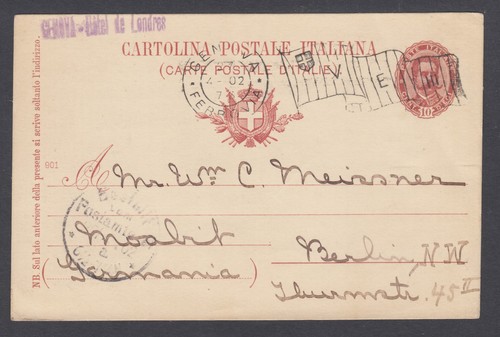 GENOVA - Hôtel de Londres
CARTOLINA POSTALE ITALIANA
(CARTE POSTALE D'ITALIE)
GENOVA
4-02
FERROVIA
V E III
10
901
A Mr. Wm C. Meissner
Moabit Berlin, NW
(Germania) Thurmstr. 45 II
NB. Sul lato anteriore della presente si scrive soltanto l'indirizzo.